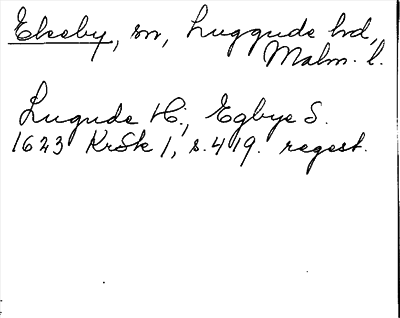 Ekeby, sn, Luggude hd,
Malm. l.
Lugude H., Egbye S.
1623 KrSk 1, s. 419. regest.